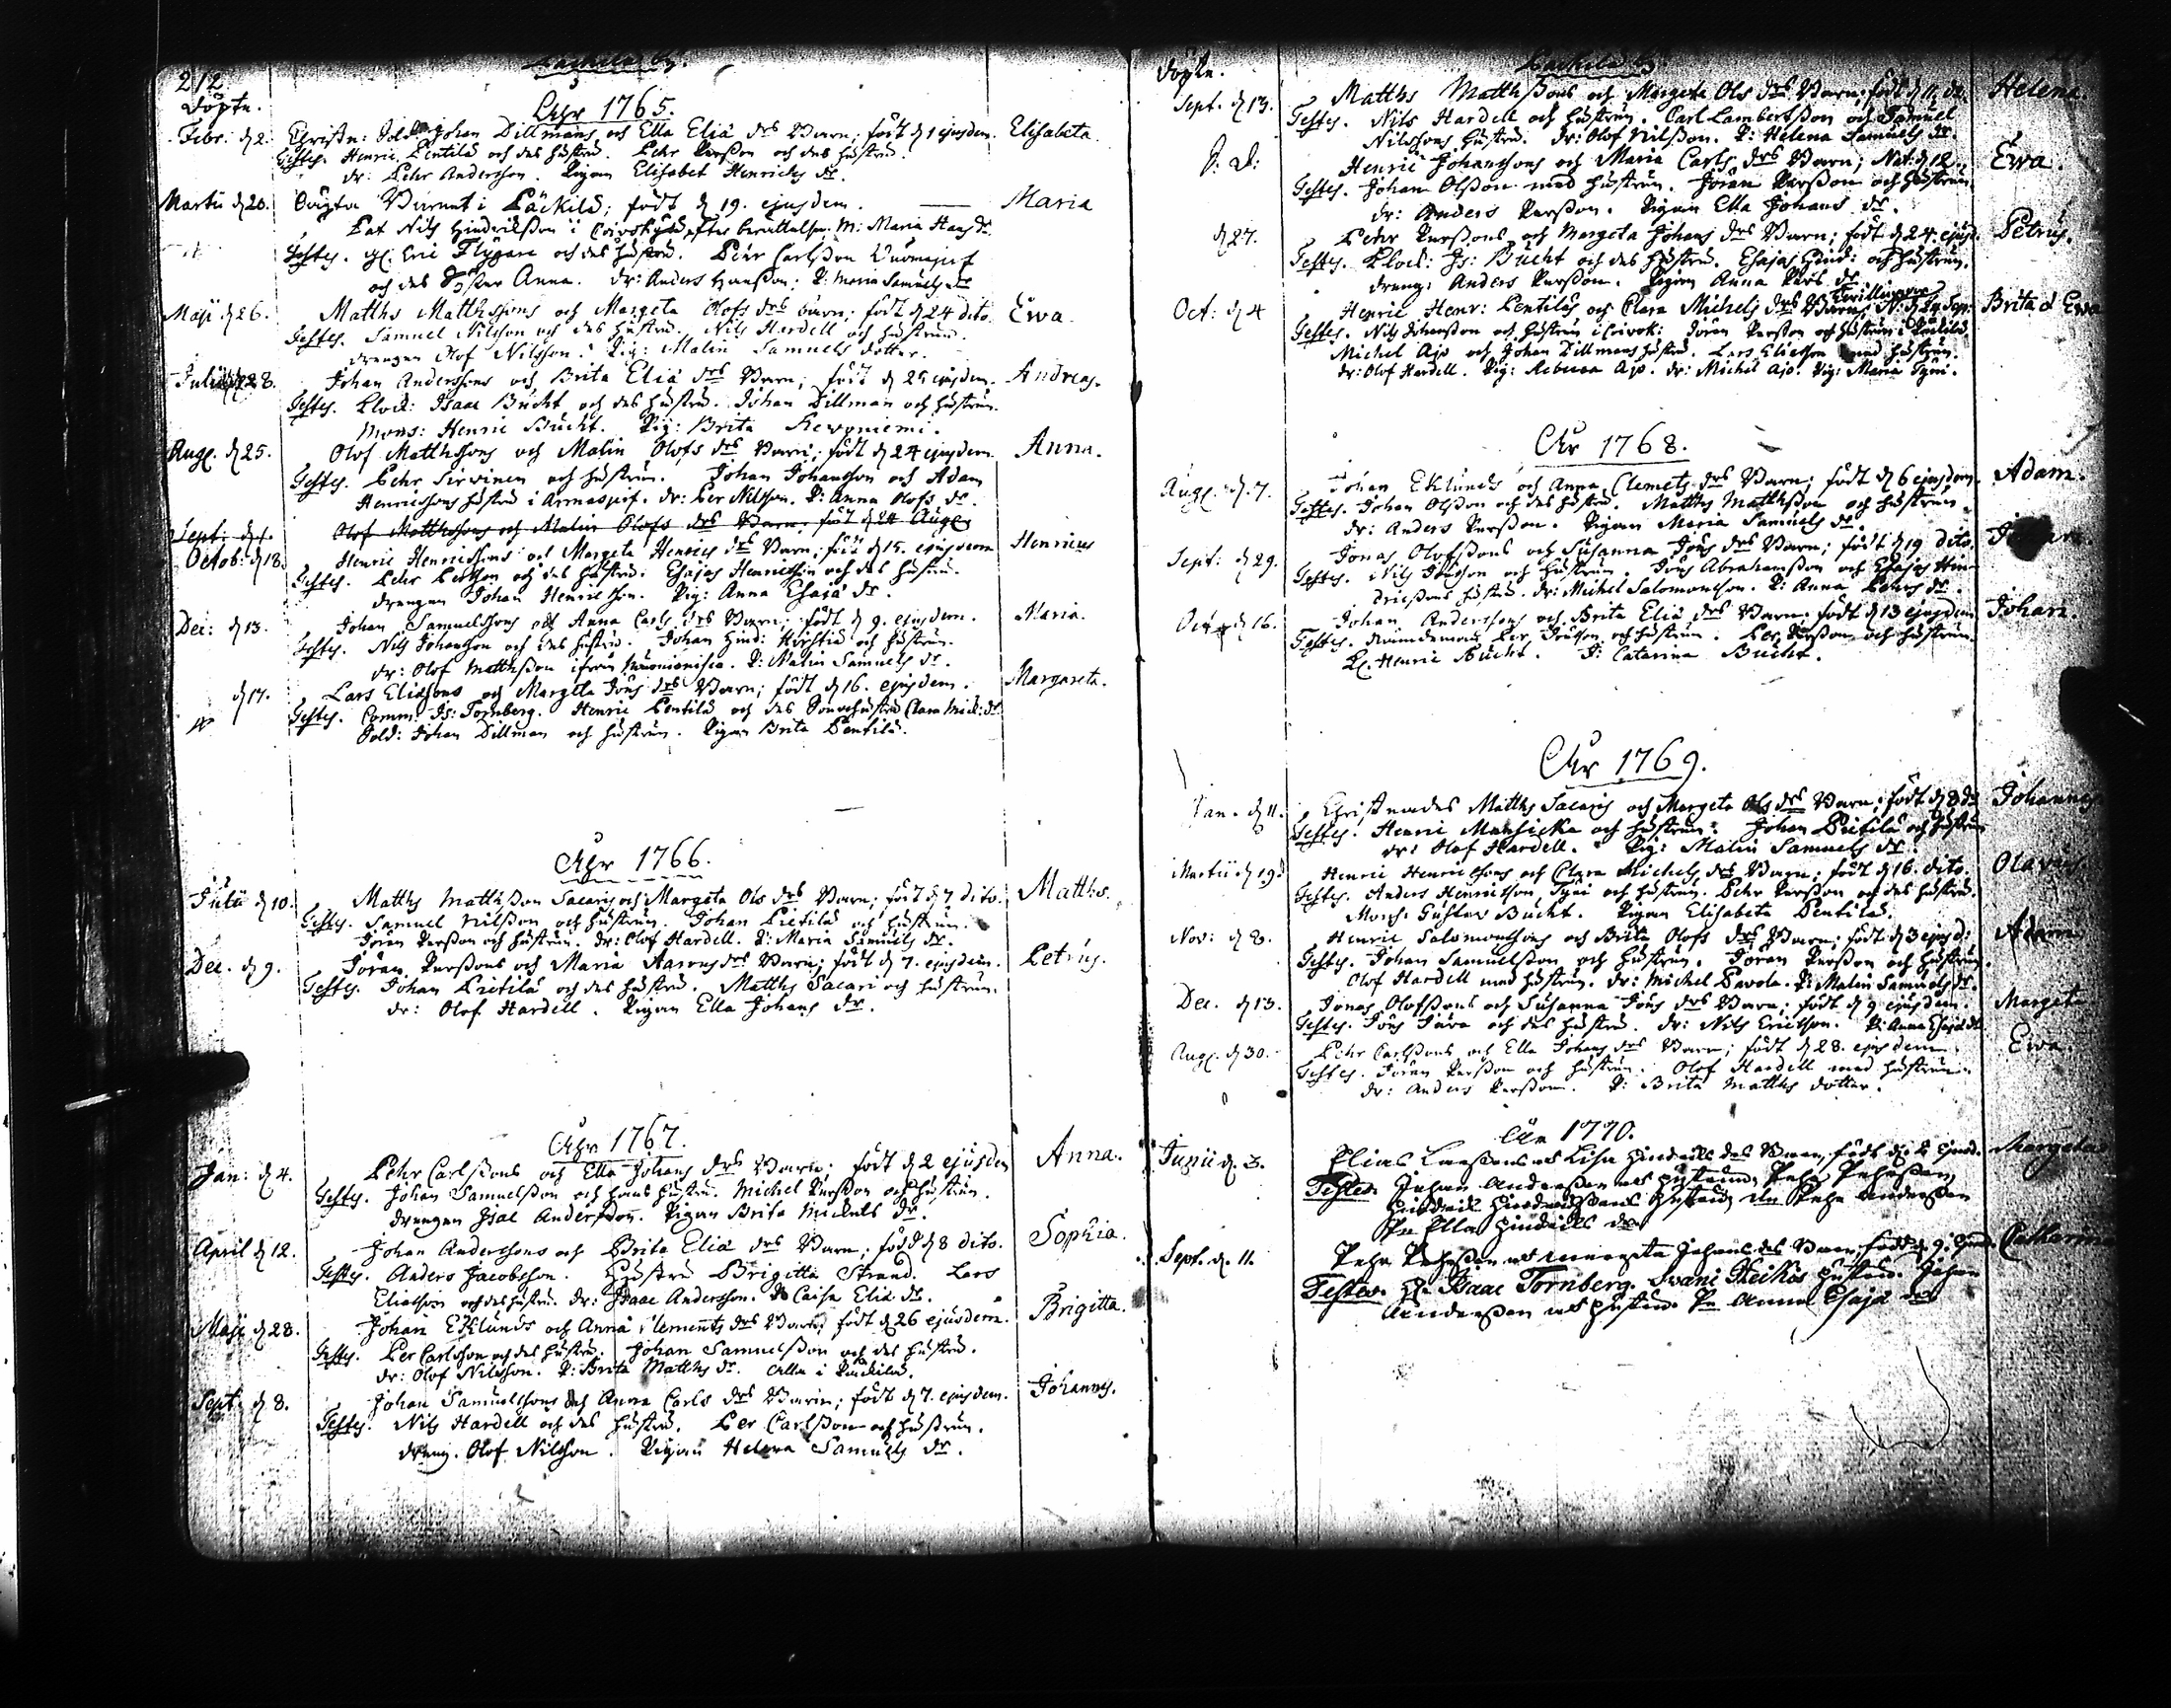 212
Döpte.
Åhr 1765.
Febr: d 2. Christn: Sold: Johan Dillmans och Ella Eliæ drs Barn; födt d 1 ejusdem. Elisabeta.
Testes. Henric Pentilä och des hustru. Pehr Persson och des hustru.
dr: Pehr Andersson. Pigan Elisabet Henrichs dr.
Martii d 20. Oägta Barnet i Päckilä; födt d 19. ejusdem. Maria
Pat Nils Hindrikson i efter berättelse. M: Maria Hans dr
Testes. gl: Eric Flygare och des hustru. Pehr Carlsson
och des Syster Anna. dr: Anders Hansson; P: Maria Samuels dr
Maji d 26. Matths Matthssons och Margeta Olofs drs barn; födt d 24 dito. Ewa.
Testes. Samuel Nilsson och des hustru. Nils Hardell och hustrun.
drengen Olof Nilsson. Pig: Malin Samuels dotter.
Julii d 28. Johan Anderssons och Brita Eliæ drs Barn; födt d 25 ejusdem. Andreas.
Testes. Klock: Isaac Bucht och des hustru. Johan Dillman och hustrun.
Mons: Henric Bucht. Pig: Brita
Aug. d 25. Olof Matthssons och Malin Olofs drs Barn; födt d 24 ejusdem. Anna.
Testes. Pehr Sirvinen och hustrun. Johan Johansson och Adam
Henricssons hustru i Armasjerf. dr: Per Nilsson. P: Anna Olofs dr.
Sept: d 1. Olof Matthssons och Malin Olofs drs Barn: födt d 24 Aug.
Octob: d 18. Henric Henricssons och Margeta Henrics drs Barn; födt d 15. ejusdem Henricus
Testes. Pehr Persson och des hustru. Esajas Henricsson och des hustru.
drengen Johan Henricsson. Pig: Anna Esajæ dr.
Dec: d 13. Johan Samuelssons och Anna Carls drs Barn; födt d 9. ejusdem. Maria.
Testes. Nils Johansson och des hustru. Johan Hind: och hustrun.
dr: Olof Matthsson ifrån Muonioniska. P: Malin Samuels dr.
d 17. Lars Eliæsons och Margeta Jöns drs Barn; födt d 16. ejusdem. Margareta.
Testes. Comm: Is: Tornberg. Henric Pentilä och des Sonahustru Clara Mick: dr
Sold: Johan Dillman och hustrun. Pigan Brita Pentilä.
Åhr 1766.
Julii d 10. Matths Matthsson Sacaris och Margeta Ols drs Barn; födt d 7 dito. Matths.
Testes. Samuel Nilsson och hustrun. Johan Pietilä och hustrun.
Jöran Persson och hustrun. dr: Olof Hardell. P: Maria Samuels dr.
Dec. d 9. Jöran Perssons och Maria Aarons drs Barn; födt d 7. ejusdem. Petrus.
Testes. Johan Pietilä och des hustru. Matths Sacari och hustrun.
dr: Olof Hardell. Pigan Ella Johans dr.
Åhr 1767.
Jan: d 4. Pehr Carlssons och Ella Johans drs Barn; födt d 2 ejusdem Anna.
Testes. Johan Samuelsson och hans hustru. Michel Persson och hustrun.
drengen Isac Andersson. Pigan Brita Mickels dr.
April d 12. Johan Anderssons och Brita Eliæ drs Barn; född d 8 dito. Sophia.
Testes. Anders Jacobsson. Hustru Brigitta Strand. Lars
Eliæsson och des hustru. dr: Isaac Andersson. P: Caisa Eliæ dr.
Maji d 28. Johan Eklunds och Anna Clements drs Barn; födt d 26 ejusdem. Brigitta.
Testes. Per Carlsson och des hustru. Johan Samuelsson och des hustru.
dr: Olof Nilsson. P: Brita Matths dr. Alla i Päckilä.
Sept: d 8. Johan Samuelssons och Anna Carls drs Barn; födt d 7. ejusdem. Johannes.
Testes. Nils Hardell och des hustru. Per Carlsson och hustrun.
dreng. Olof Nilsson. Pigan Helena Samuels dr.
Päckilä by.
Döpte.
Sept. d 13. Matths Matthssons och Margeta Ols drs Barn; födt d 11. do. Helena.
Testes. Nils Hardell och hustrun. Carl Lambertsson och Samuel
Nilssons hustru. dr: Olof Nilsson. P: Helena Samuels dr.
S. D: Henric Johanssons och Maria Carls drs Barn; Nat: d 12. Ewa.
Testes. Johan Olsson med hustrun. Jöran Persson och hustrun
dr: Anders Persson. Pigan Ella Johans dr.
d 27. Pehr Perssons och Margeta Johans drs Barn; födt d 24. ejusd. Petrus.
Testes. Klock: Is: Bucht och des hustru. Esajas Hind: och hustrun.
dreng: Anders Persson. Pigan Anna Pers dr.
Oct: d 4 Henric Henr: Pentiläs och Clara Michels drs Barn, Tvillingar Brita & Ewa
Testes. Nils Johansson och hustrun i Jöran Persson och hustrun i Päckilä.
Michel Ajo och Johan Dillmans hustru. Lars Eliæsson med hustrun.
dr: Olof Hardell. Pig: Rebecca Ajo. dr: Michel Ajo. Pig: Maria Tyni.
Åhr 1768.
Aug. d 7. Johan Eklunds och Anna Clemets drs Barn; födt d 6 ejusdem. Adam.
Testes. Johan Olsson och des hustru. Matths Matthsson och hustrun
dr: Anders Persson. Pigan Maria Samuels dr.
Sept: d 29. Jonas Olofssons och Susanna Jöns drs Barn; födt d 19 dito.
Testes. Nils Jönsson och hustrun. Jöns Abrahamsson och Esajas Hin-
dricssons hustru. dr: Michel Salomonsson. P: Anna dr.
Oct d 16. Johan Anderssons och Brita Eliæ drs Barn; födt d 13 ejusdem Johan.
Testes. Nämdeman Per Jönsson och hustrun. Per Persson och hustrun.
Henric Bucht. J: Catarina Bucht.
Åhr 1769.
Jan. d 11. Christnades Matths Sacaris och Margeta Ols drs Barn; födt d 8 do Johannes
Testes. Henric och hustrun. Johan Pietilä och hustrun
dr: Olof Hardell. Pig: Malin Samuels dr.
Martii d 19 Henric Henricssons och Clara Michels drs Barn; födt d 16. dito. Olaus
Testes. Anders Henricsson Tyni och hustrun. Pehr Persson och des hustru.
Mons. Gustav Bucht. Pigan Elisabeta Pentilä.
Nov: d 8. Henric Salomonssons och Brita Olofs drs Barn; födt d 3 ejusd: Adam
Testes. Johan Samuelsson och hustrun. Jöran Persson och hustrun.
Olof Hardell med hustrun. dr: Michel Pavola. P: Malin Samuels dr.
Dec. d 13. Jonas Olofssons och Susanna Jöns drs Barn; födt d 9 ejusdem. Margeta
Testes. Jöns och des hustru. dr: Nils Ericsson. P: Anna Esajæ dr
Aug. d 30. Pehr Carlssons och Ella Johans drs Barn; födt d 28. ejusdem Ewa.
Testes. Jöran Persson och hustrun. Olof Hardell med hustrun
dr: Anders Persson. P: Brita Matths dotter.
Åhr 1770.
Junii d. 3. Elias Larssons och Lisa Hindriks drs Barn, födt d. 2 Margeta
Testes. Johan Andersson och hustrun, Pehr Pehrsson,
Hindrik Hindrikssons hustru, dr Pehr Andersson
Pn Ella Hindriks dr
Sept. d. 11. Pehr Pehrssons och Margeta Johans drs Barn, födt d. 9. Catharina
Testes. Hr Isaac Tornberg. hustru. Johan
Andersson och hustru. Pn Anna Esajæ dr